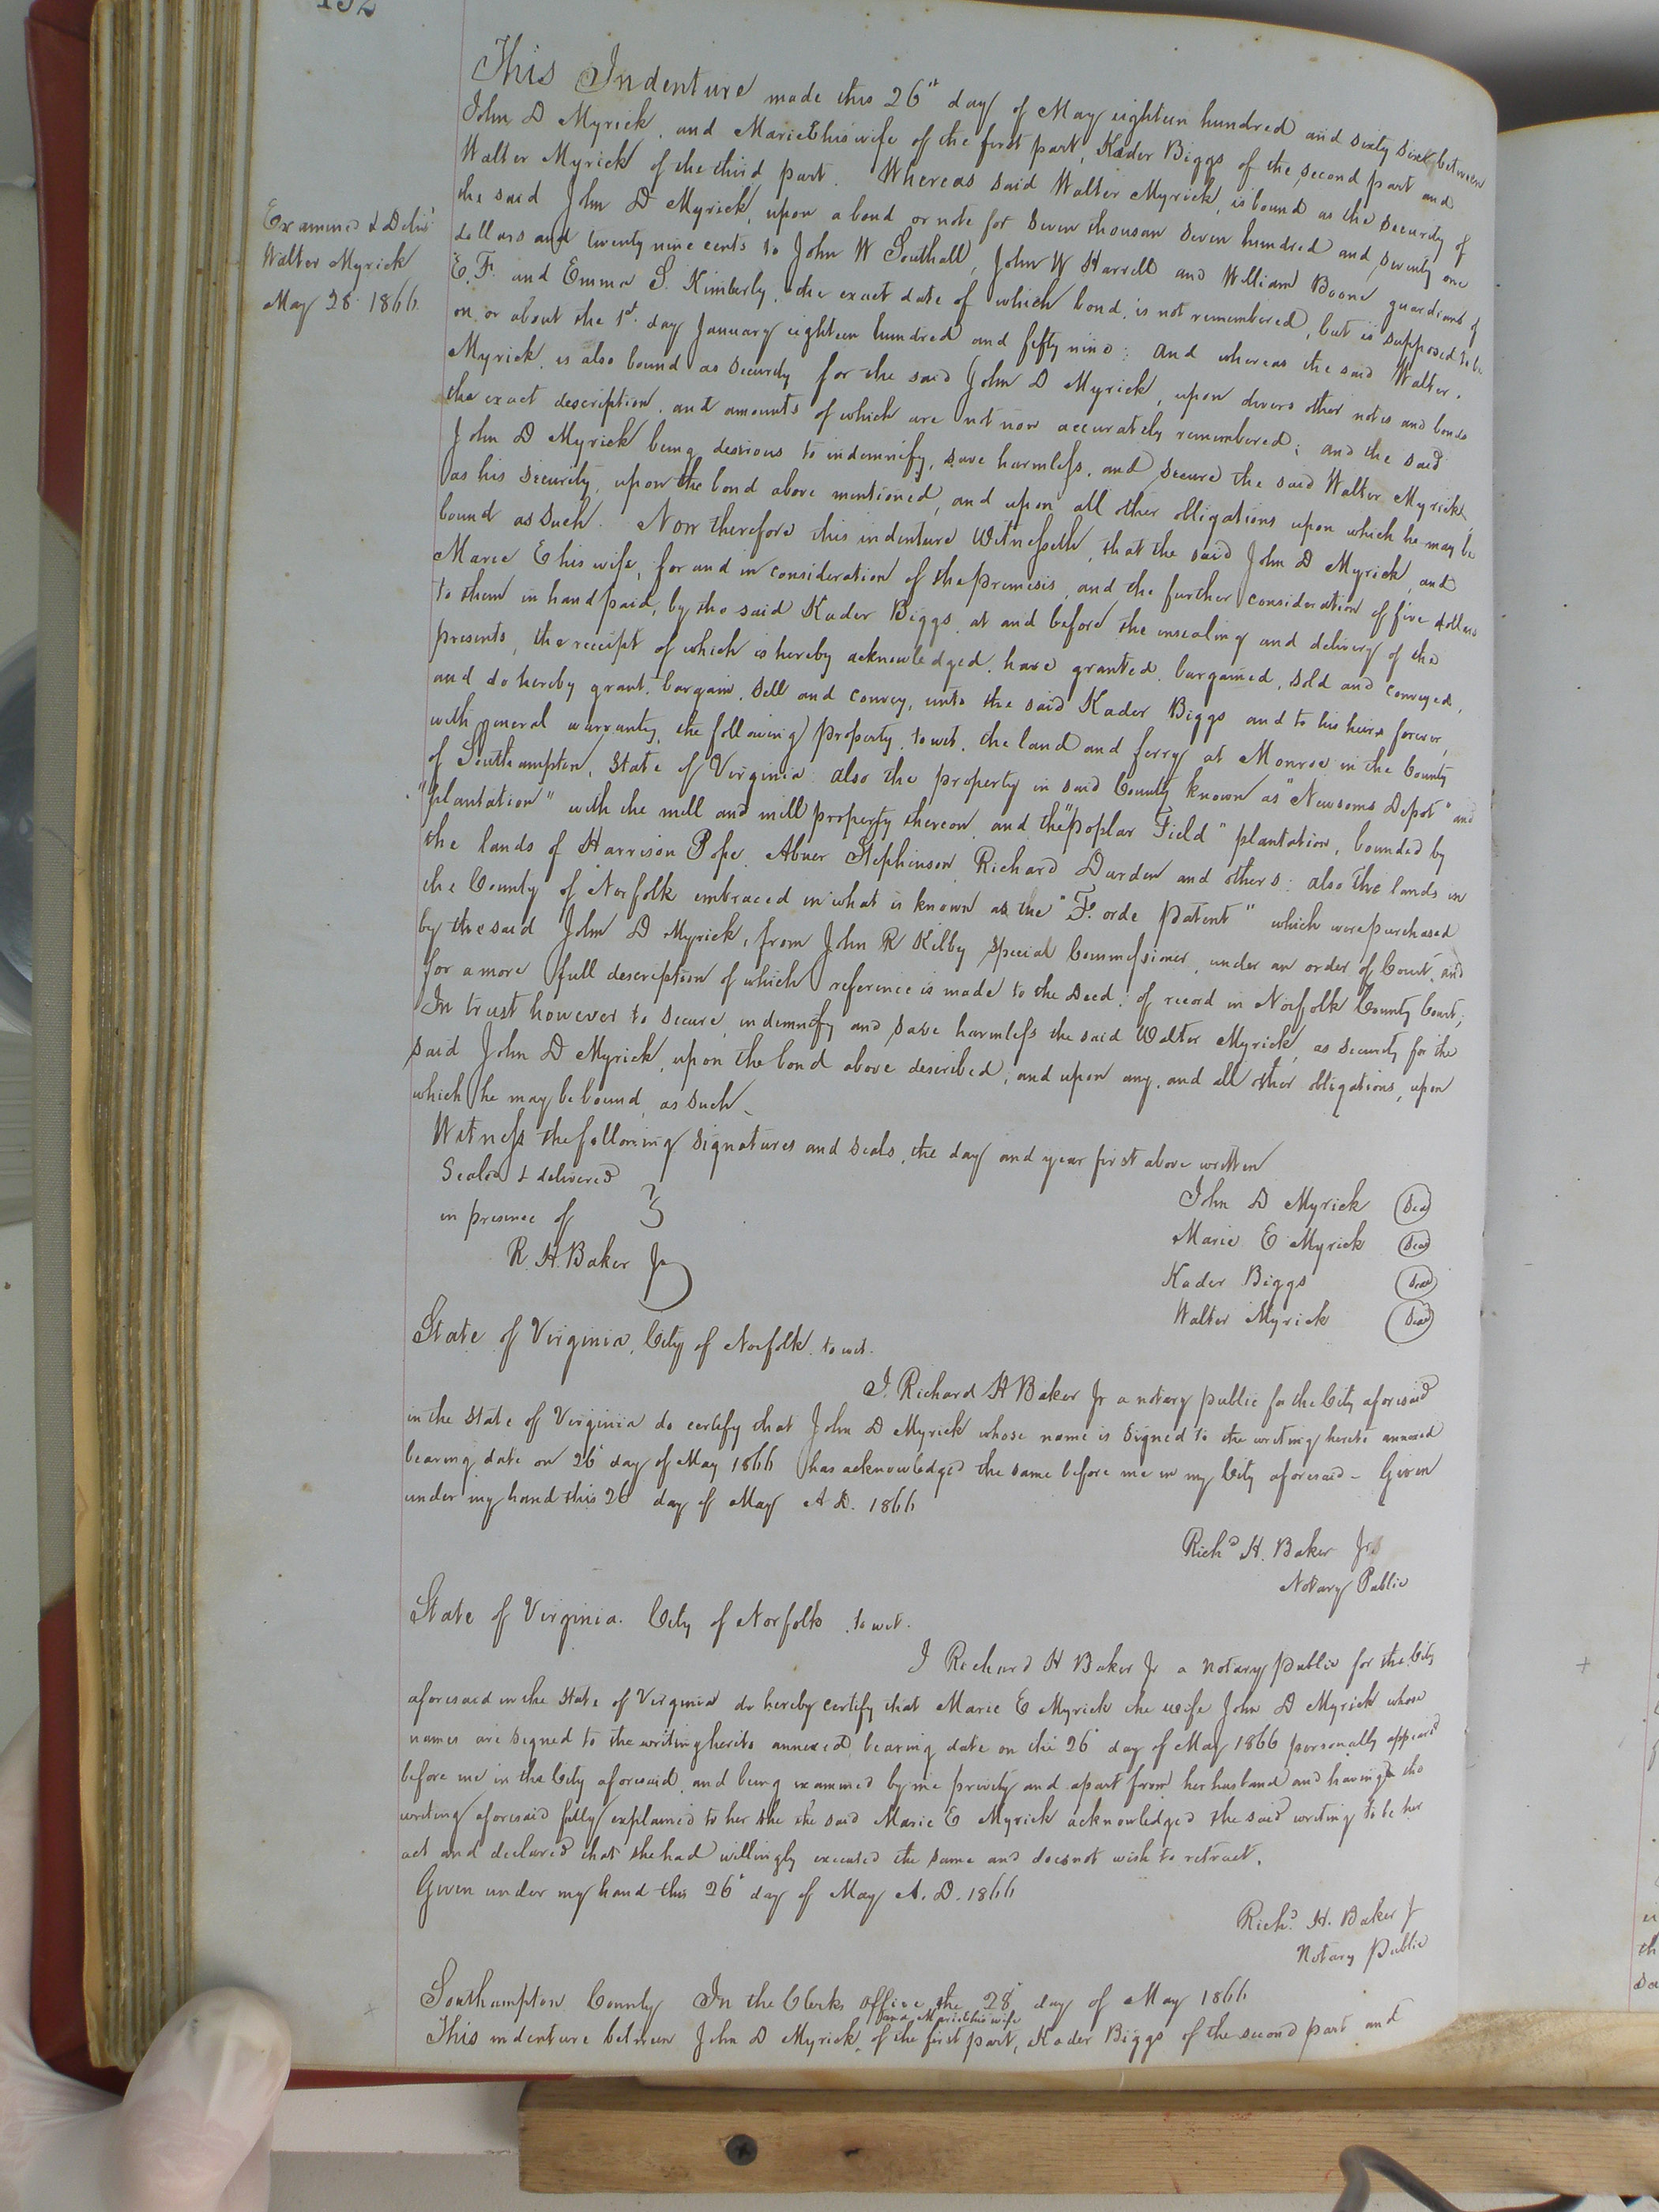 132
This Indenture made this 26" day of May eighteen hundred and sixty six between
John D Myrick, and Marie E his wife of the first part, Kader Biggs of the second part and
Walter Myrick of the third part. Whereas said Walter Myrick, is bound as the security of
the said John D Myrick, upon a bond or note for seven thousan seven hundred and seventy one
dollars and twenty nine cents to John W Southall, John W Harrell and William Boone guardians of
E. F. and Emma S. Kimberly, the exact date of which bond, is not remembered, but is supposed to be
on or about the 1st. day January eighteen hundred and fifty nine: and whereas the said Walter.
Myrick, is also bound as security for the said John D Myrick, upon divers other notes and bonds
the exact description, and amounts of which are not now accurately remembered; and the said
John D Myrick being desirous to indemnify, save harmless, and secure the said Walter Myrick,
as his security, upon the bond above mentioned, and upon all other obligations upon which he may be
bound as such. Now therefore this indenture Witnesseth, that the said John D Myrick, and
Marie E his wife, for and in consideration of the premisis, and the further consideration of five dollars
to them in hand paid, by the said Kader Biggs, at and before the ensealing and delivery of the
presents, the receipt of which is hereby acknowledged, have granted, bargained, sold and conveyed,
and do hereby grant, bargain, sell and convey, unto the said Kader Biggs and to his heirs forever,
with general warranty, the following property, to wit, the land and ferry at Monroe in the County
of Southampton, State of Virginia: also the property in said County known as "Newsoms Depot" and
"plantation" with the mill and mill property thereon, and the "Poplar Field" plantation, bounded by
the lands of Harrison Pope, Abner Stephenson, Richard Darden and others: also the lands in
the County of Norfolk embraced in what is known as the "F. orde patent" which were purchased
by the said John D Myrick, from John R Kilby Special Commissioner, under an order of Court, and
for a more full description of which reference is made to the Deed: of record in Norfolk County Court;
In trust however to secure, indemnify and save harmless the said Walter Myrick, as security for the
said John D Myrick, upon the bond above described; and upon any, and all other obligations, upon
which he may be bound, as such.
Witness the following signatures and seals, the day and year first above written
Sealed & delivered
in presence of
R. H. Baker Jr
John D Myrick (Seal)
Marie E Myrick (Seal)
Kader Biggs (Seal)
Walter Myrick (Seal)
Examined & Deliv'd
Walter Myrick
May 28 1866.
State of Virginia, City of Norfolk, to wit.
I, Richard H Baker Jr a notary public for the City aforesaid
in the State of Virginia do certify that John D Myrick whose name is signed to the writing hereto annexed
bearing date on 26 day of May 1866 has acknowledged the same before me in my City aforesaid - Given
under my hand this 26 day of May A D. 1866
Rich'd H. Baker Jr.
Notary Public
State of Virginia. City of Norfolk, to wit.
I Richard H Baker Jr a Notary public for the City
aforesaid in the State of Virginia do hereby certify that Marie E Myrick the wife John D Myrick whose
names are signed to the writing hereto annexed, bearing date on the 26" day of May 1866 personally appeared
before me in the City aforesaid, and being examined by me privily and apart from her husband and having the
writing aforesaid fully explained to her she the said Marie E Myrick acknowledged the said writing to be her
act and declared that she had willingly executed the same and does not wish to retract.
Given under my hand this 26" day of May A. D. 1866
Rich'd H. Baker Jr
Notary Public
Southampton County In the Clerks office the 28" day of May 1866
and Marie E his wife
This indenture between John D Myrick, of the first part, Kader Biggs of the second part and